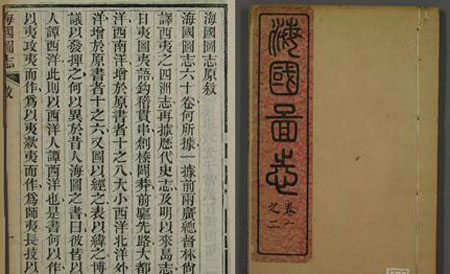 海國圖志原敘
海國圖志六十卷何所據一據前兩廣總督林尚
譯西夷之四洲志再據歷代史志及明以來島志
日夷圖夷語鉤稽貫串創榛闢莽前驅先路大都
洋西南洋增於原書者十之八大小西洋北洋外
洋增於原書者十之六又圖以經之表以緯之博
議以發揮之何以異於昔人海圖之書曰彼皆以
人譚西洋此則以西洋人譚西洋也是書何以作
以夷攻夷而作為以夷款夷而作為師夷長技以
海國圖志
敘
一
海國圖志
卷一
之二